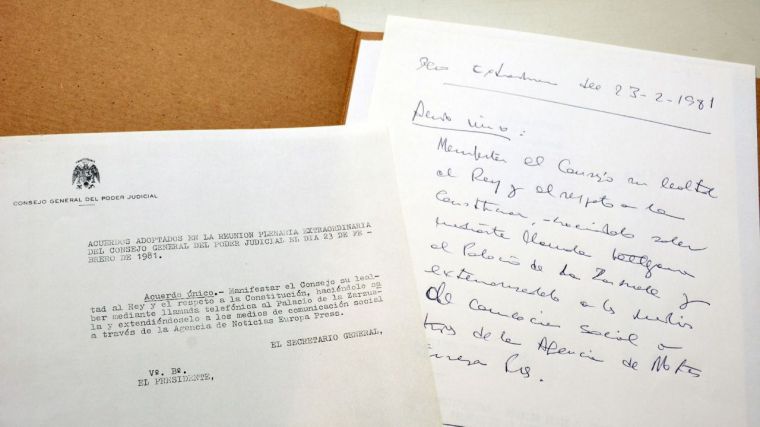 CONSEJO GENERAL DEL PODER JUDICIAL
ACUERDOS ADOPTADOS EN LA REUNION PLENARIA EXTRAORDINARIA
DEL CONSEJO GENERAL DEL PODER JUDICIAL EL DIA 23 DE FE-
BRERO DE 1981.
Acuerdo único.- Manifestar el Consejo su leal-
tad al Rey y el respeto a la Constitución, haciéndolo sa
ber mediante llamada telefónica al Palacio de la Zarzue-
la y extendiéndoselo a los medios de comunicación social
a través de la Agencia de Noticias Europa Press.
EL SECRETARIO GENERAL,
Vº. Bº.
EL PRESIDENTE,
del 23-2-1981
Acuerdo único:
Manifestar el Consejo su lealtad
al Rey y el respeto a la
Constitución, haciéndolo saber
mediante llamada
al Palacio de la Zarzuela y
a los medios
de comunicación social a
través de la Agencia de Noticias
Europa Press.